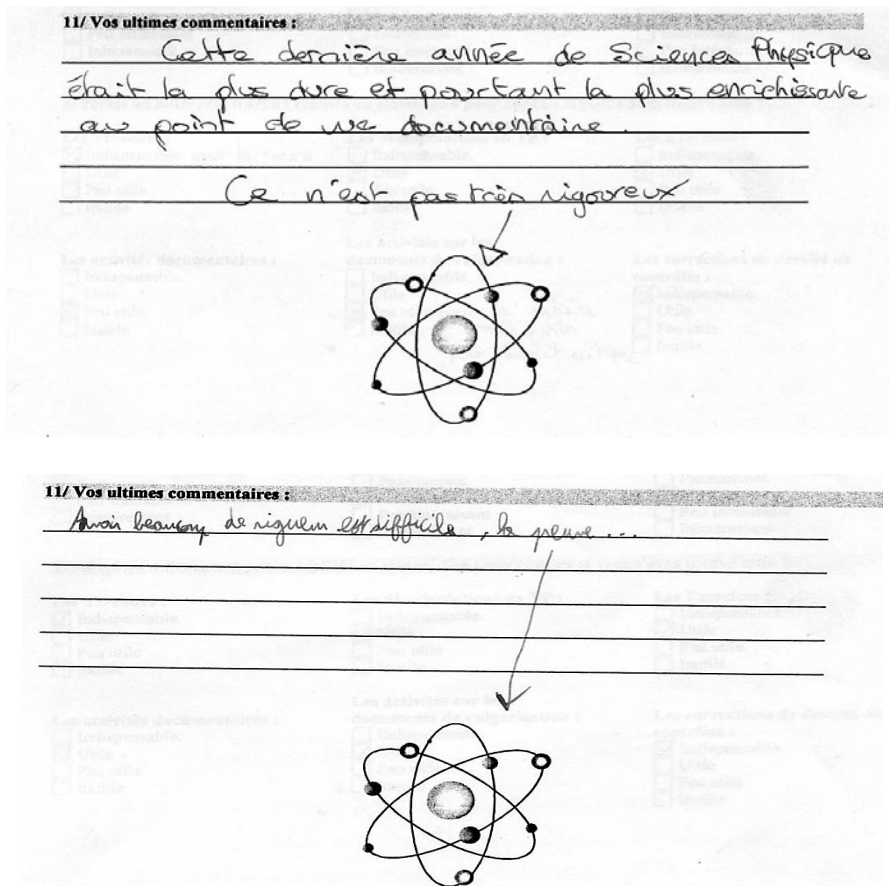 11/ Vos ultimes commentaires :
Cette dernière année de Sciences Physique
était la plus dure et pourtant la plus enrichissante
au point de vue documentaire.
Ce n'est pas très rigoureux
11/ Vos ultimes commentaires :
Avoir beaucoup de rigueur est difficile, la preuve...